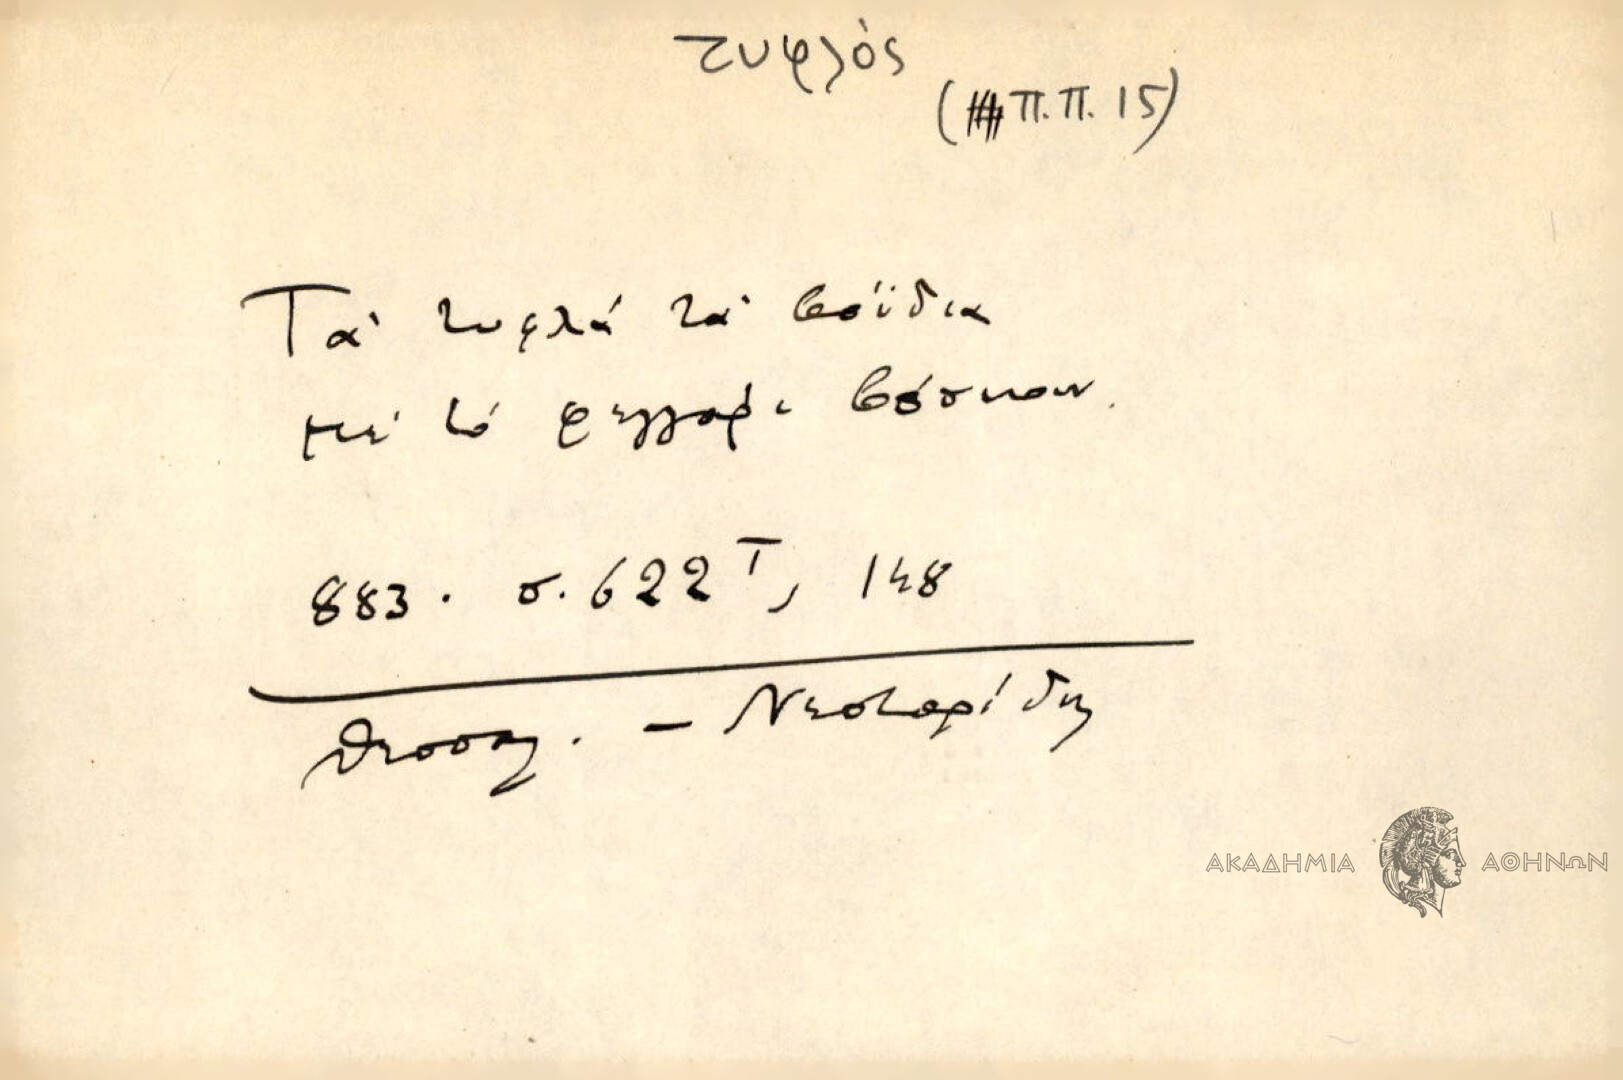 τυφλός
(Π.Π. 15)
Τα τυφλά τα βόϊδια
με το φεγγάρι βόσκουν.
883. σ. 622 Τ, 148
Θεσσαλ. - Νεστορίδης
ΑΚΑΔΗΜΙΑ ΑΘΗΝΩΝ